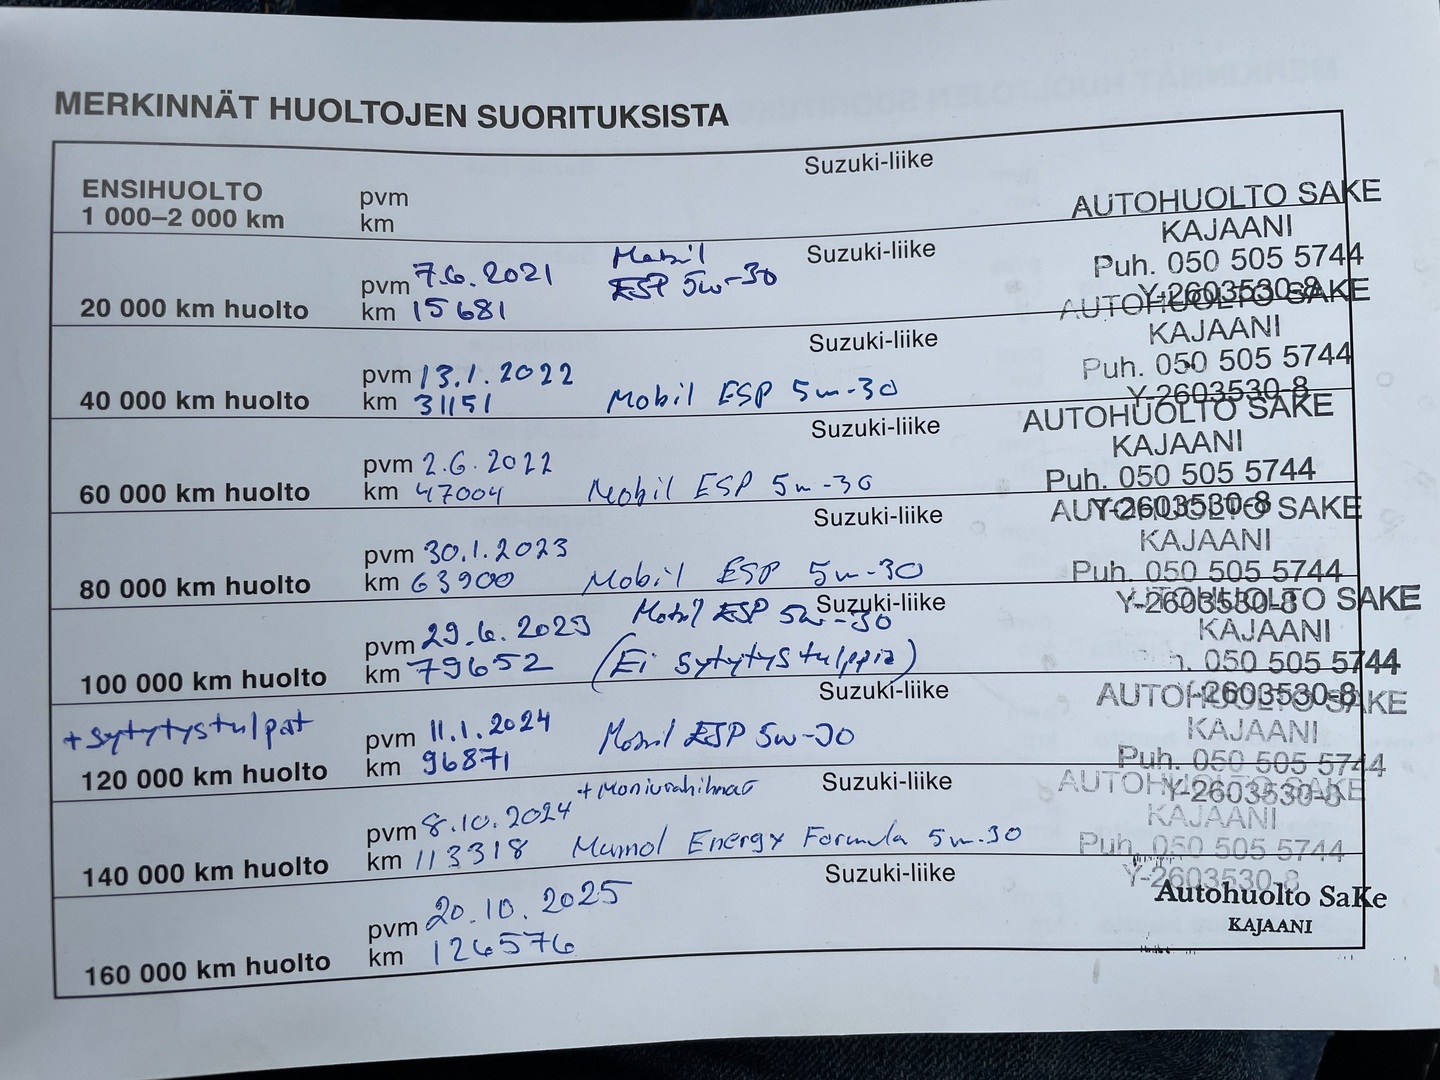 MERKINNÄT HUOLTOJEN SUORITUKSISTA
ENSIHUOLTO
1 000–2 000 km
pvm
km
Suzuki-liike
AUTOHUOLTO SAKE
KAJAANI
Puh. 050 505 5744
Y-2603530-8
20 000 km huolto
pvm 7.6.2021
km 15681
Mobil
ESP 5w-30
Suzuki-liike
AUTOHUOLTO SAKE
KAJAANI
Puh. 050 505 5744
Y-2603530-8
40 000 km huolto
pvm 13.1.2022
km 31151
Mobil ESP 5w-30
Suzuki-liike
AUTOHUOLTO SAKE
KAJAANI
Puh. 050 505 5744
Y-2603530-8
60 000 km huolto
pvm 2.6.2022
km 47004
Mobil ESP 5w-30
Suzuki-liike
AUTOHUOLTO SAKE
KAJAANI
Puh. 050 505 5744
Y-2603530-8
80 000 km huolto
pvm 30.1.2023
km 63900
Mobil ESP 5w-30
Suzuki-liike
UTOHUOLTO SAKE
KAJAANI
h. 050 505 5744
-2603530-8
100 000 km huolto
pvm 29.6.2023
km 79652
Mobil ESP 5w-30
(Ei sytytystulppia)
Suzuki-liike
AUTOHUOLTO SAKE
KAJAANI
Puh. 050 505 5744
Y-2603530-8
+sytytystulpat
120 000 km huolto
pvm 11.1.2024
km 96871
Mobil ESP 5w-30
Suzuki-liike
AUTOHUOLTO SAKE
KAJAANI
Puh. 050 505 5744
Y-2603530-8
140 000 km huolto
pvm 8.10.2024
km 113318
+ Moniurahihna
Mannol Energy Formula 5w-30
Suzuki-liike
Autohuolto SaKe
KAJAANI
160 000 km huolto
pvm 20.10.2025
km 126576
Suzuki-liike